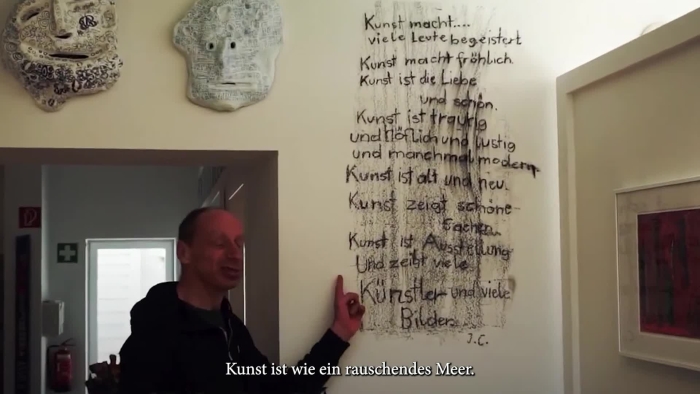 Kunst macht....
viele Leute begeistert
Kunst macht fröhlich
Kunst ist die Liebe
und schön.
Kunst ist traurig
und höflich und lustig
und manchmal modern
Kunst ist alt und neu.
Kunst zeigt schöne
Sachen.
Kunst ist Ausstellung
Und zeigt viele
Künstler und viele
Bilder.
J.C.
Kunst ist wie ein rauschendes Meer.